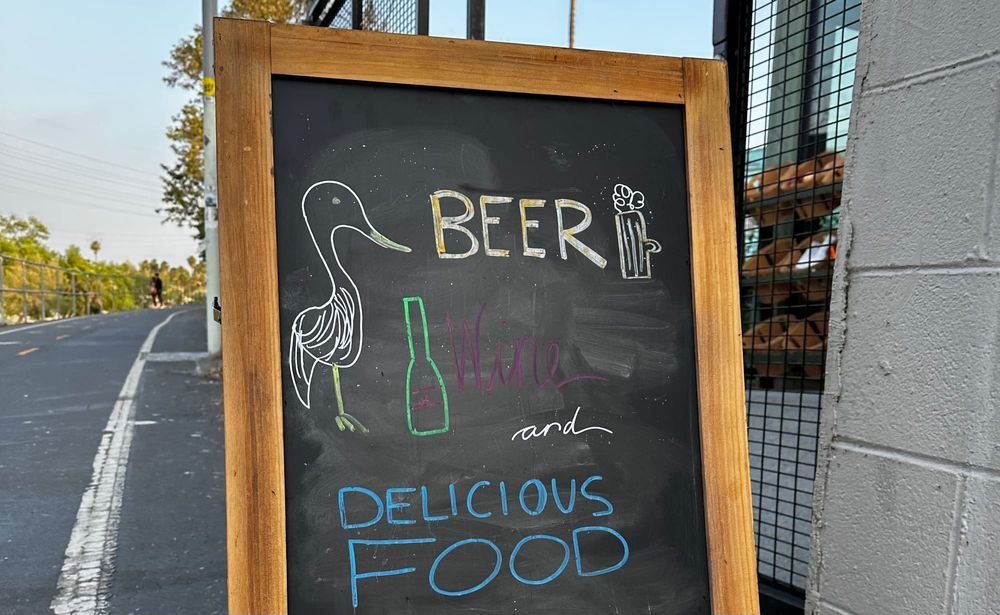 BEER
Wine
and
DELICIOUS
FOOD